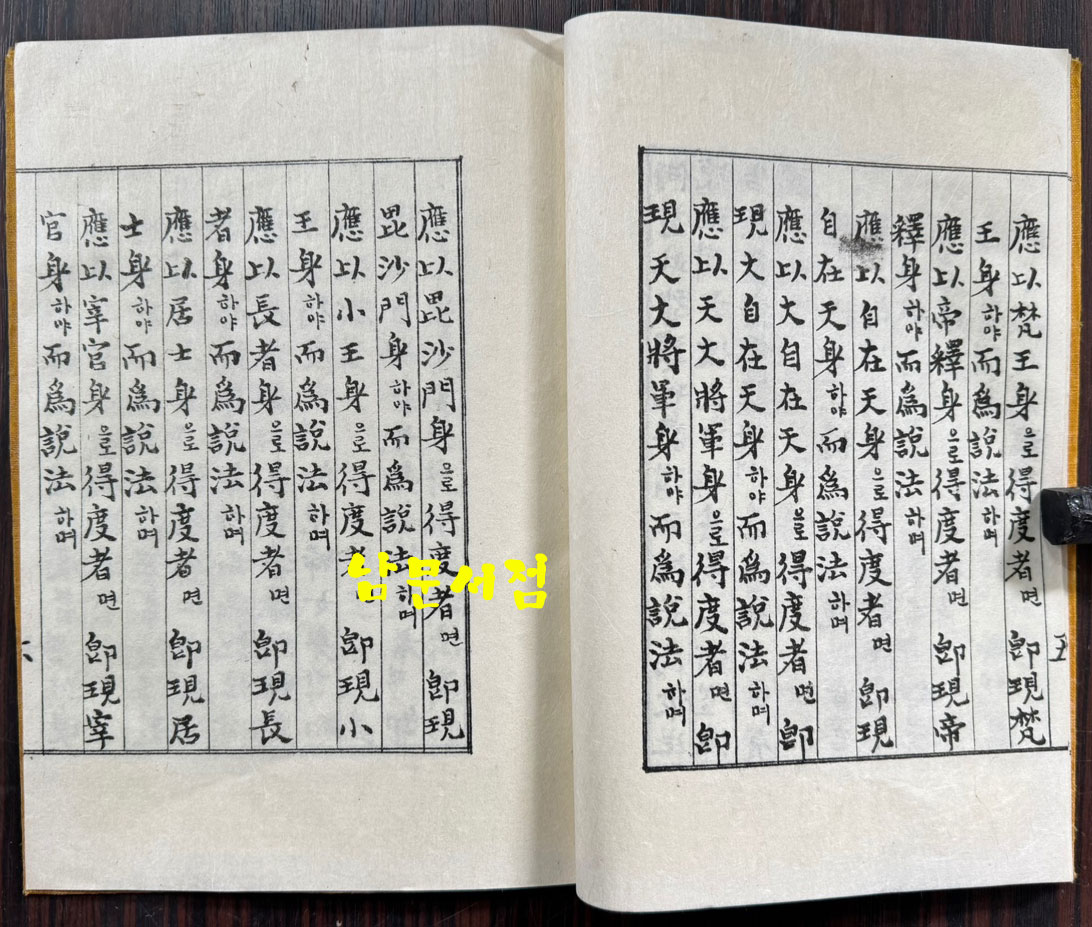 五
應以梵王身으로得度者면 卽現梵
王身하야而爲說法하며
應以帝釋身으로得度者면 卽現帝
釋身하야而爲說法하며
應以自在天身으로得度者면 卽現
自在天身하야而爲說法하며
應以大自在天身으로得度者면 卽
現大自在天身하야而爲說法하며
應以天大將軍身으로得度者면 卽
現天大將軍身하야而爲說法하며
應以毘沙門身으로得度者면 卽現
毘沙門身하야而爲說法하며
應以小王身으로得度者 卽現小
王身하야而爲說法하며
應以長者身으로得度者면 卽現長
者身하야而爲說法하며
應以居士身으로得度者면 卽現居
士身하야而爲說法하며
應以宰官身으로得度者면 卽現宰
官身하야而爲說法하며
남문서점